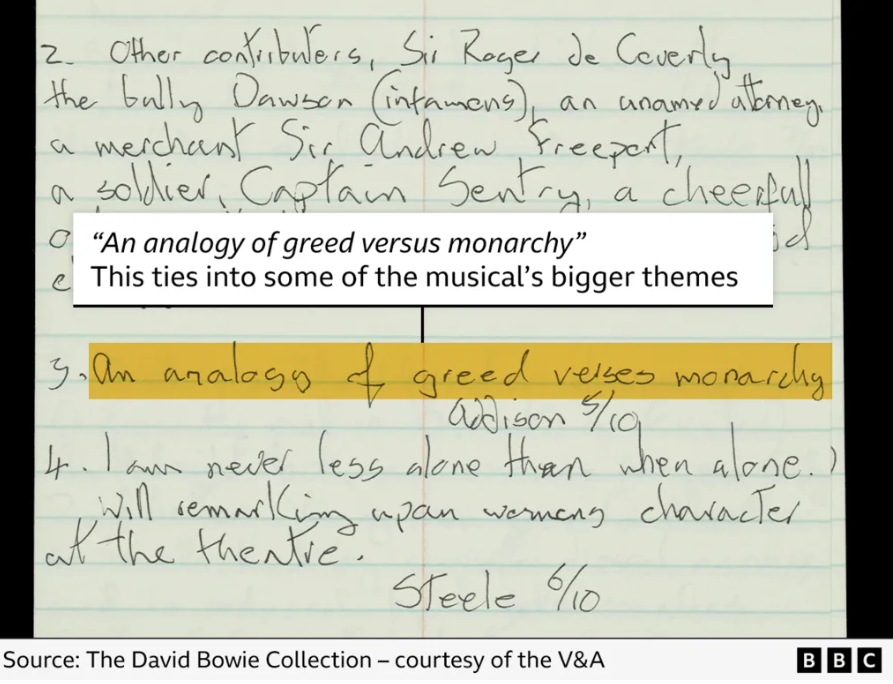 2. Other contributers, Sir Roger de Coverly
the bully Dawson (infamous), an unamed attorney.
a merchant Sir Andrew Freeport,
a soldier, Captain Sentry, a cheerfull
“An analogy of greed versus monarchy”
This ties into some of the musical’s bigger themes
3. An analogy of greed verses monarchy
Addison 5/10
4. I am never less alone than when alone.)
Will remarking upon womens character
at the theatre.
Steele 6/10
Source: The David Bowie Collection – courtesy of the V&A
BBC